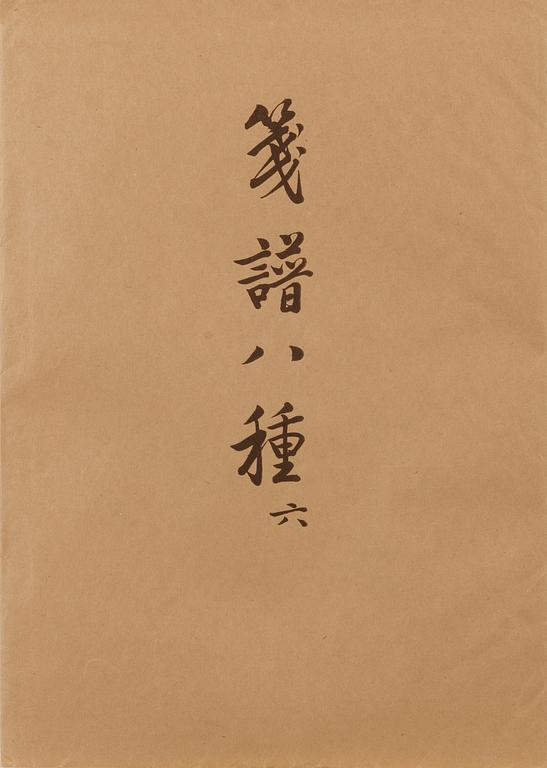 箋譜八種
六